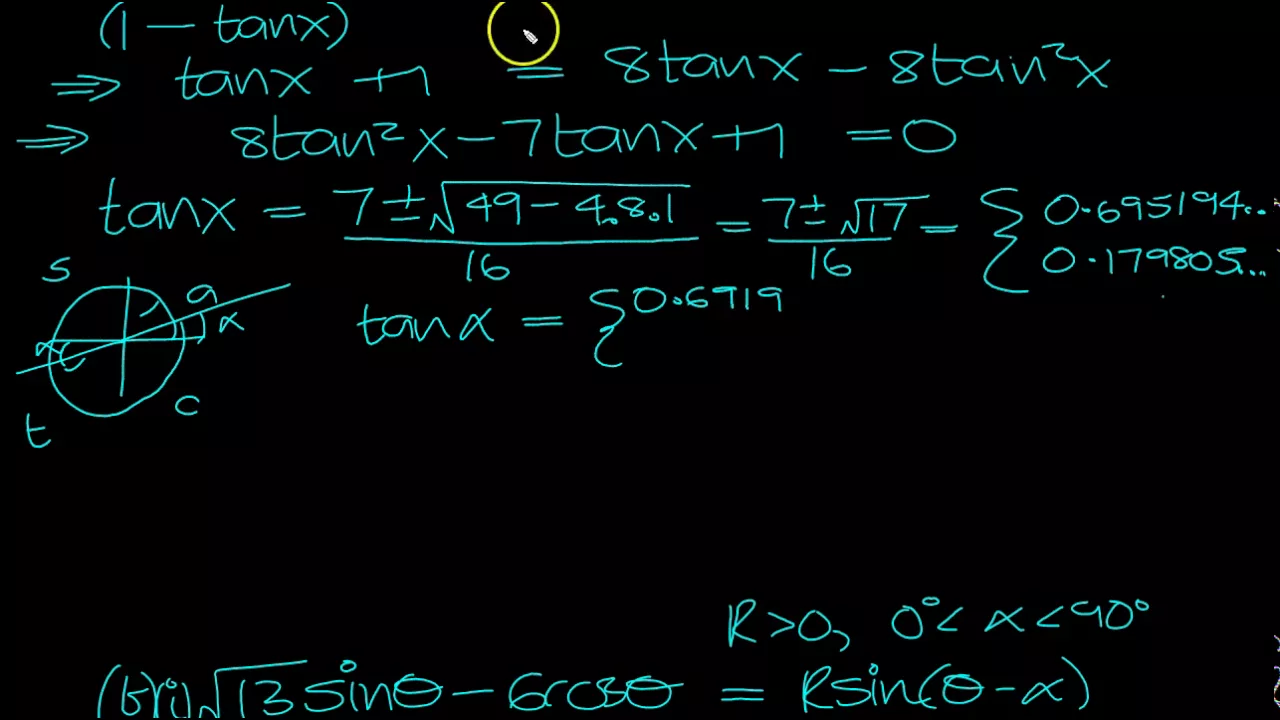 (1 − tanx)
⇒ tanx + 1 = 8tanx − 8tan²x
⇒ 8tan²x − 7tanx + 1 = 0
tanx = 7 ± √49 − 4.8.1 / 16 = 7 ± √17 / 16 = { 0.695194... 0.179805...
S a
α
tanα = { 0.6919
α
c
t
R>0, 0°< α < 90°
(b)(i) √13 sinθ − 6cosθ = Rsin(θ − α)